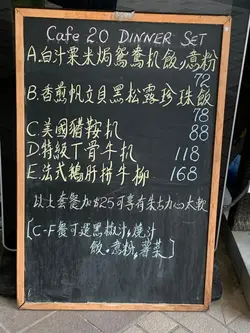 Cafe 20 DINNER SET
A.白汁粟米焗鴛鴦扒飯,意粉
72
B.香煎帆立貝黑松露珍珠飯
78
C.美國豬鞍扒 88
D.特級丁骨牛扒 118
E.法式鵝肝拼牛柳 168
以上套餐加$25可享有朱古力心太軟
[C-F餐可選黑椒汁,燒汁
飯.意粉,薯菜]